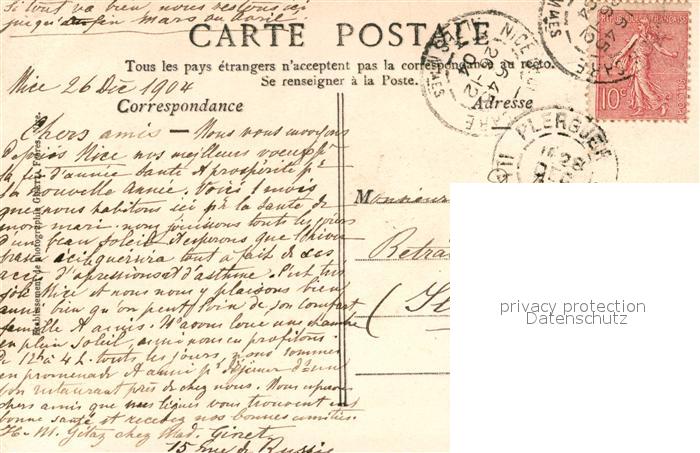 Si tout va bien, nous restons ici
jusqu'en fin mars ou avril
CARTE POSTALE
Tous les pays étrangers n'acceptent pas la correspondance au recto.
Se renseigner à la Poste.
Nice 26 Déc 1904
Correspondance
Adresse
Chers amis — Nous vous envoyons
depuis Nice nos meilleurs voeux pr
la fin d'année Santé & prospérité pr
la nouvelle Année. Voici 1 mois
que nous habitons ici pr la santé de
mon mari, nous jouissons tout les jours
d'un beau soleil & espérons que l'hiver
passé ici guérira tout à fait de ses
accès d'oppressions et d'asthme. C'est très
joli Nice et nous nous y plaisons bien
aussi bien qu'on peut loin de son comfort
famille & amis. Ns avons loué une chambre
en plein soleil, aussi nous en profitons.
De 12h à 4h. touts les jours, nous sommes
en promenade & aussi pr déjeuner d'un
bon restaurant près de chez nous. Nous espérons
chers amis que nos lignes vous trouvent en
bonne santé et recevez nos bonnes amitiés.
H. M. Gétaz chez Mad. Giret
15 Rue de Russie
Établissement de photographie Frères, Nice
Monsieur
Retrai
(
NICE GARE
6 45
26-12
04
ALPES MARITIMES
PLERGUER
28
DEC
RÉPUBLIQUE FRANÇAISE
10c
privacy protection
Datenschutz